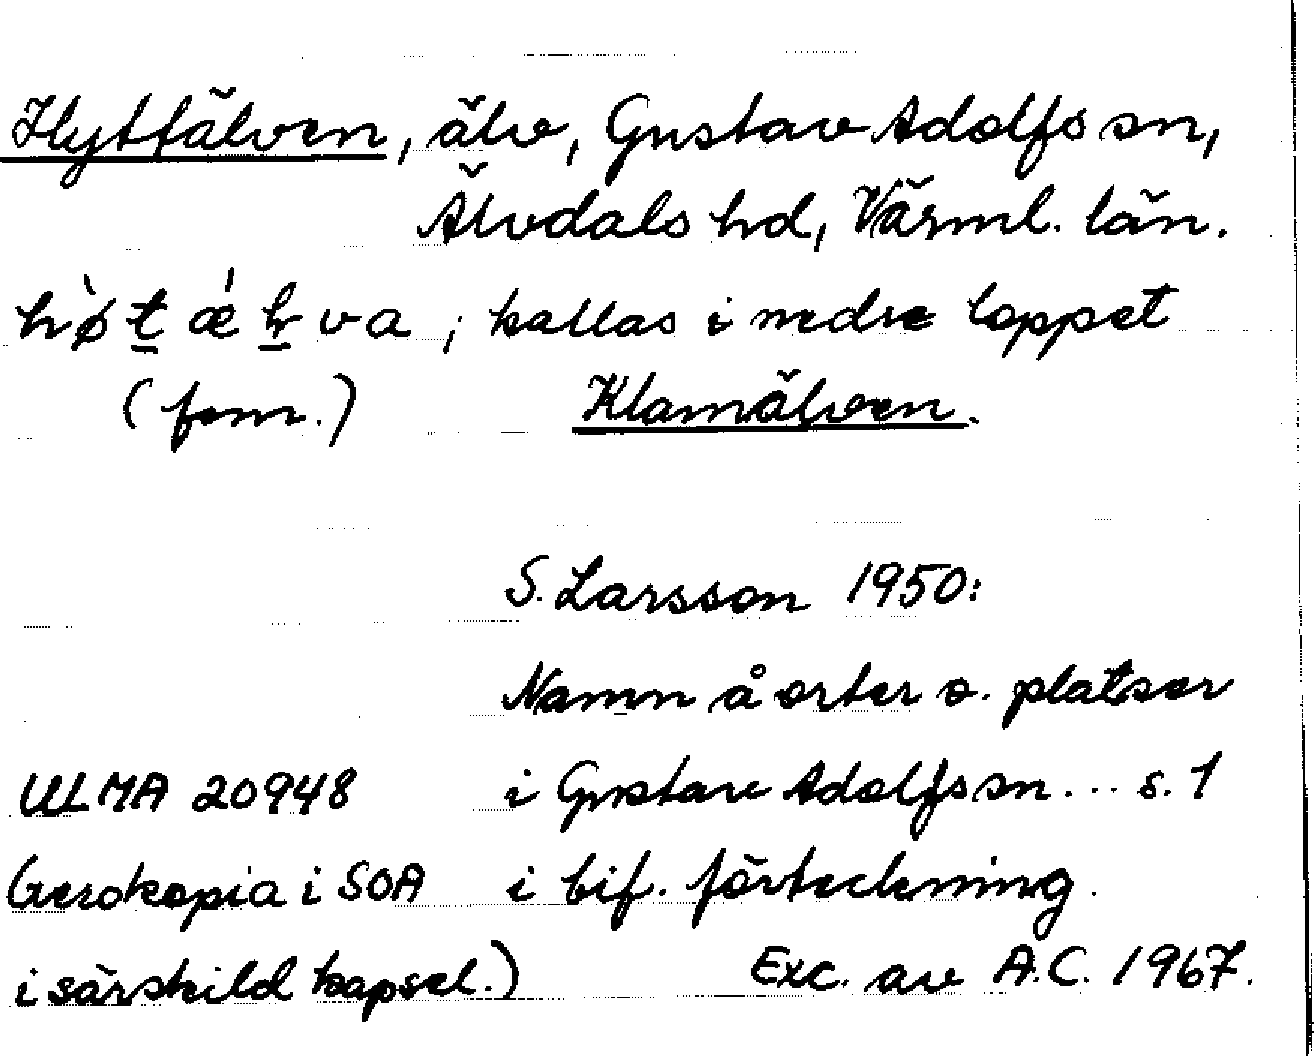 Hyttälven, älv, Gustav Adolfs sn,
Älvdals hd, Värml. län.
kallas i nedre loppet
(fonr.) Klarnälven.
S. Larsson 1950:
Namn å orter o. platser
ULMA 20948 i Gustav Adolfs sn... s. 1
(xerokopia i SOA i bif. förteckning.
i särskild kapsel.) Exc. av A.C. 1967.